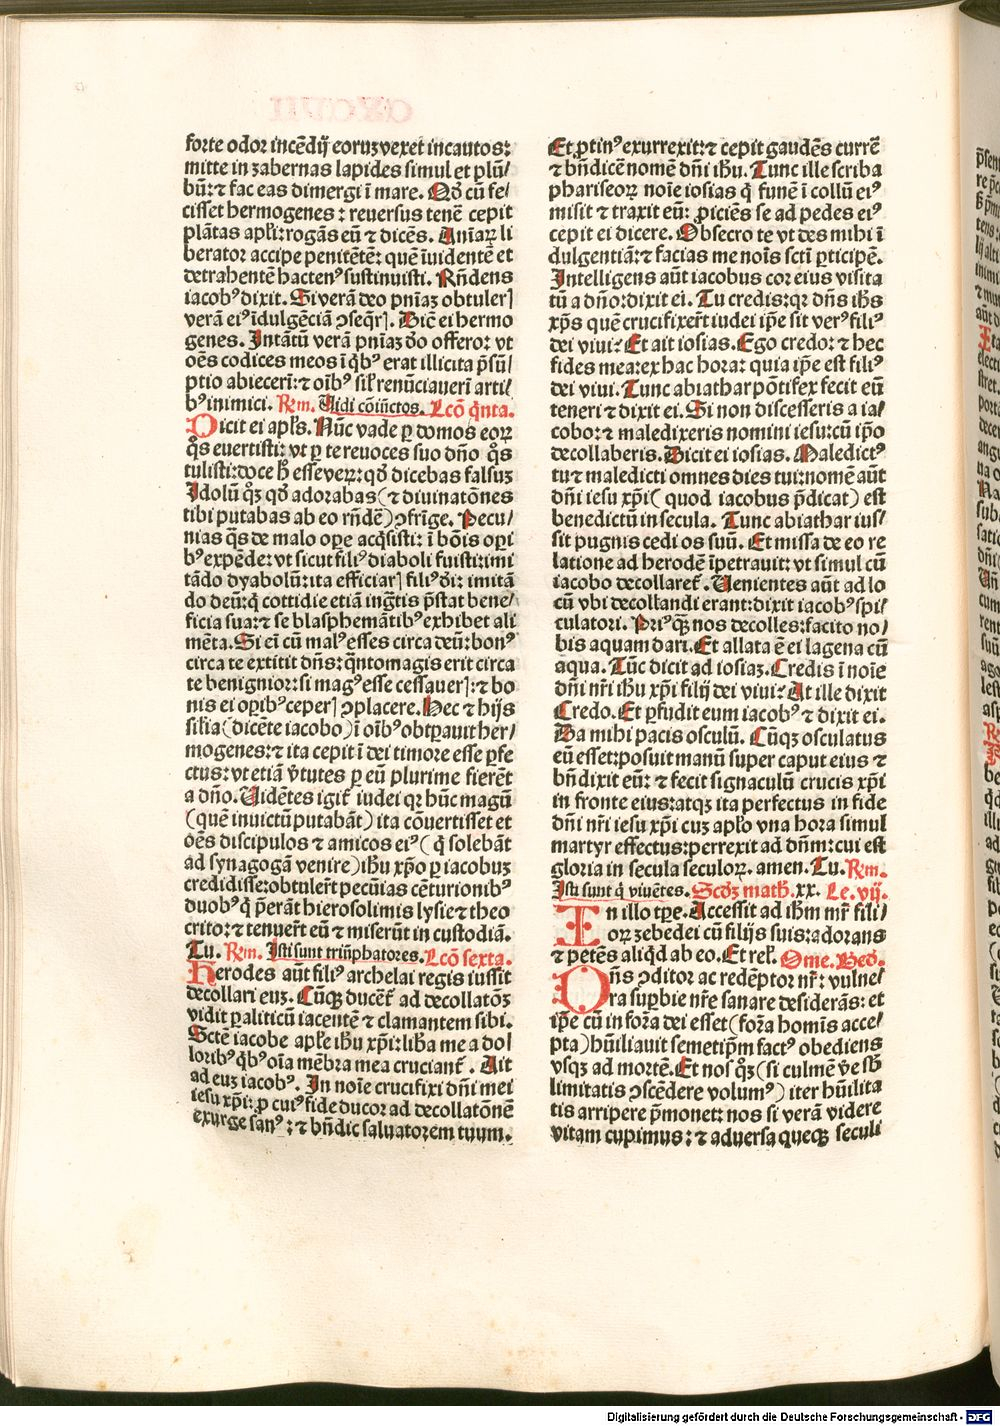 forte odor incēdij eoruʒ vexet incautos:
mitte in zabernas lapides simul et plū/
bū: ⁊ fac eas dimergi ī mare. Qḋ cū fe/
cisset hermogenes: reuersus tenē cepit
plātas apłi: rogās eū ⁊ dicēs. Aīaꝝ li
berator accipe penitētē: quē īuidentē et
detrahentē hactenꝰ sustinuisti. Rñdens
iacobꝰ dixit. Si verā deo pniaʒ obtuler̄
verā eiꝰ īdulgēciā ꝯseq̄r̄. Dic̄ ei hermo
genes. Intātū verā pniaʒ ḋo offero: vt
oēs codices meos ī q̇bꝰ erat illicita p̄sū/
ptio abiecerī: ⁊ oībꝰ sił renūciauerī arti/
bꝰ inimici. Rm̄. Uidi cōiūctos. Lcō q̄nta.
Dicit ei apłs. Nūc vade ꝑ domos eoꝝ
q̊s euertisti: vt ꝑ te reuoces suo dño q̊s
tulisti: doce ħ esse veꝝ: qḋ dicebas falsuʒ
Idolū qʒ qḋ adorabas (⁊ diuinatōnes
tibi putabas ab eo rñdē) ꝯfrīge. Pecu/
nias q̄s de malo oꝑe acq̇sisti: ī bōis oꝑi
bꝰ expēde: vt sicut filiꝰ diaboli fuisti: imi
tādo dyabolū: ita efficiar̄ filiꝰ ḋi: imitā
do deū: q̇ cottidie etiā ingr̄tis p̄stat bene/
ficia sua: ⁊ se blasphemātibꝰ exhibet ali
mēta. Si eī cū malꝰ esses circa deū: bonꝰ
circa te extitit dñs: q̄ntomagis erit circa
te benignior: si magꝰ esse cessauer̄: ⁊ bo
nis ei oꝑibꝰ ceper̄ ꝯplacere. Hec ⁊ hijs
silia (dicēte iacobo) ī oībꝰ obtꝑauit her/
mogenes: ⁊ ita cepit ī dei timore esse ꝑfe
ctus: vt etiā v̄tutes ꝑ eū plurime fierēt
a dño. Uidētes igit̄ iudei qꝛ hūc magū
(quē inuictū putabāt) ita cōuertisset et
oēs discipulos ⁊ amicos eiꝰ (q̇ solebāt
ad synagogā venire) ihū xp̄o ꝑ iacobuʒ
credidisse: obtuler̄t pecūias cēturionibꝰ
duobꝰ q̇ p̄erāt hierosolimis lysie ⁊ theo
crito: ⁊ tenuer̄t eū ⁊ miserūt in custodiā.
Tu. Rm̄. Isti sunt triūphatores. Lcō sexta.
Herodes aūt filiꝰ archelai regis iussit
decollari euʒ. Cūqʒ ducēt̄ ad decollatōʒ
vidit ꝑaliticū iacentē ⁊ clamantem sibi.
Sctē iacobe apłe ihū xp̄i: liƀa me a dol
loribꝰ q̇bꝰ oīa mēbra mea cruciant̄. Ait
ad euʒ iacobꝰ. In noīe crucifixi dñi mei
iesu xp̄i: ꝓ cuiꝰ fide ducor ad decollatōnē
exurge sanꝰ: ⁊ bñdic saluatorem tuum.
Et ꝓtinꝰ exurrexit: ⁊ cepit gaudēs currē
⁊ bñdicē nomē dñi ihū. Tunc ille scriba
phariseoꝝ noīe iosias q̇ funē ī collū eiꝰ
misit ⁊ traxit eū: ꝓiciēs se ad pedes eiꝰ
cepit ei dicere. Obsecro te vt des mihi ī
dulgentiā: ⁊ facias me noīs scti ꝑticipē.
Intelligens aūt iacobus cor eius visita
tū a dño: dixit ei. Tu credis: qꝛ dñs ihs
xp̄s quē crucifixer̄t iudei ip̄e sit verꝰ filiꝰ
dei viui? Et ait iosias. Ego credo: ⁊ hec
fides mea: ex hac hora: quia ip̄e est filiꝰ
dei viui. Tunc abiathar pōtifex fecit eū
teneri ⁊ dixit ei. Si non discesseris a ia/
cobo: ⁊ maledixeris nomini iesu: cū ip̄o
decollaberis. Dicit ei iosias. Maledictꝰ
tu: ⁊ maledicti omnes dies tui: nomē aūt
dñi iesu xp̄i (quod iacobus p̄dicat) est
benedictū in secula. Tunc abiathar ius/
sit pugnis cedi os suū. Et missa de eo re
latione ad herodē īpetrauit: vt simul cū
iacobo decollaret̄. Uenientes aūt ad lo
cū vbi decollandi erant: dixit iacobꝰ spi/
culatori. Priꝰqʒ nos decolles: facito no/
bis aquam dari. Et allata ē ei lagena cū
aqua. Tūc dicit ad iosiaʒ. Credis ī noīe
dñi nr̄i ihū xp̄i filij dei viui? At ille dixit
Credo. Et ꝑfudit eum iacobꝰ ⁊ dixit ei.
Da mihi pacis osculū. Cūqʒ osculatus
eū esset: posuit manū super caput eius ⁊
bñdixit eū: ⁊ fecit signaculū crucis xp̄i
in fronte eius: atqʒ ita perfectus in fide
dñi nr̄i iesu xp̄i cuʒ apło vna hora simul
martyr effectus: perrexit ad dñm: cui est
gloria in secula seculoꝝ. amen. Tu. Rm̄.
Isti sunt q̇ viuētes. Scḋʒ math̄. xx. Le. vij.
In illo tꝑe. Accessit ad ihm mr̄ fili/
oꝝ zebedei cū filijs suis: adorans
⁊ petēs aliq̇d ab eo. Et rel̄. Ome. Bed̄.
Dñs ꝯditor ac redēptor nr̄: vulne/
ra suꝑbie nr̄e sanare desiderās: et
ip̄e cū in forʒa dei esset (forʒa homīs acce/
pta) hūiliauit semetip̄m factꝰ obediens
vsqʒ ad mortē. Et nos q̄ʒ (si culmē v̄e sƀ
limitatis ꝯscēdere volumꝰ) iter hūilita
tis arripere p̄monet: nos si verā videre
vitam cupimus: ⁊ aduersa queqʒ seculi
Digitalisierung gefördert durch die Deutsche Forschungsgemeinschaft - DFG